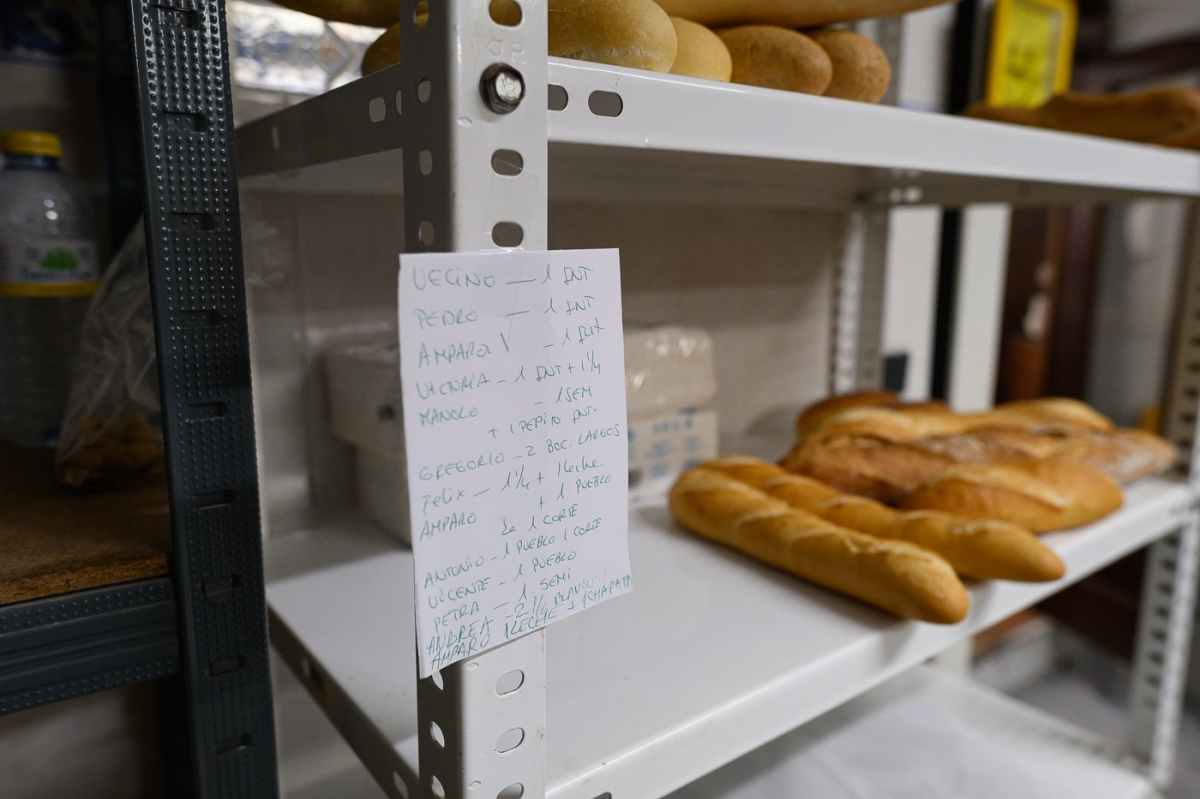 VECINO — 1 INT
PEDRO — 1 INT
AMPARO V - 1 Int
VICTORIA - 1 INT + 1 1/4
MANOLO - 1 SEM
+ 1 PEPITO INT.
GREGORIO - 2 BOC. LARGOS
Felix - 1 1/4 + 1 leche
AMPARO + 1 PUEBLO
1 CORTE
ANTONIO - 1 PUEBLO 1 CORTE
VICENTE - 1 PUEBLO
PETRA - 1 SEMI
ANDREA - 2 1/4
AMPARO 1 LECHE + 1 CHAPATA